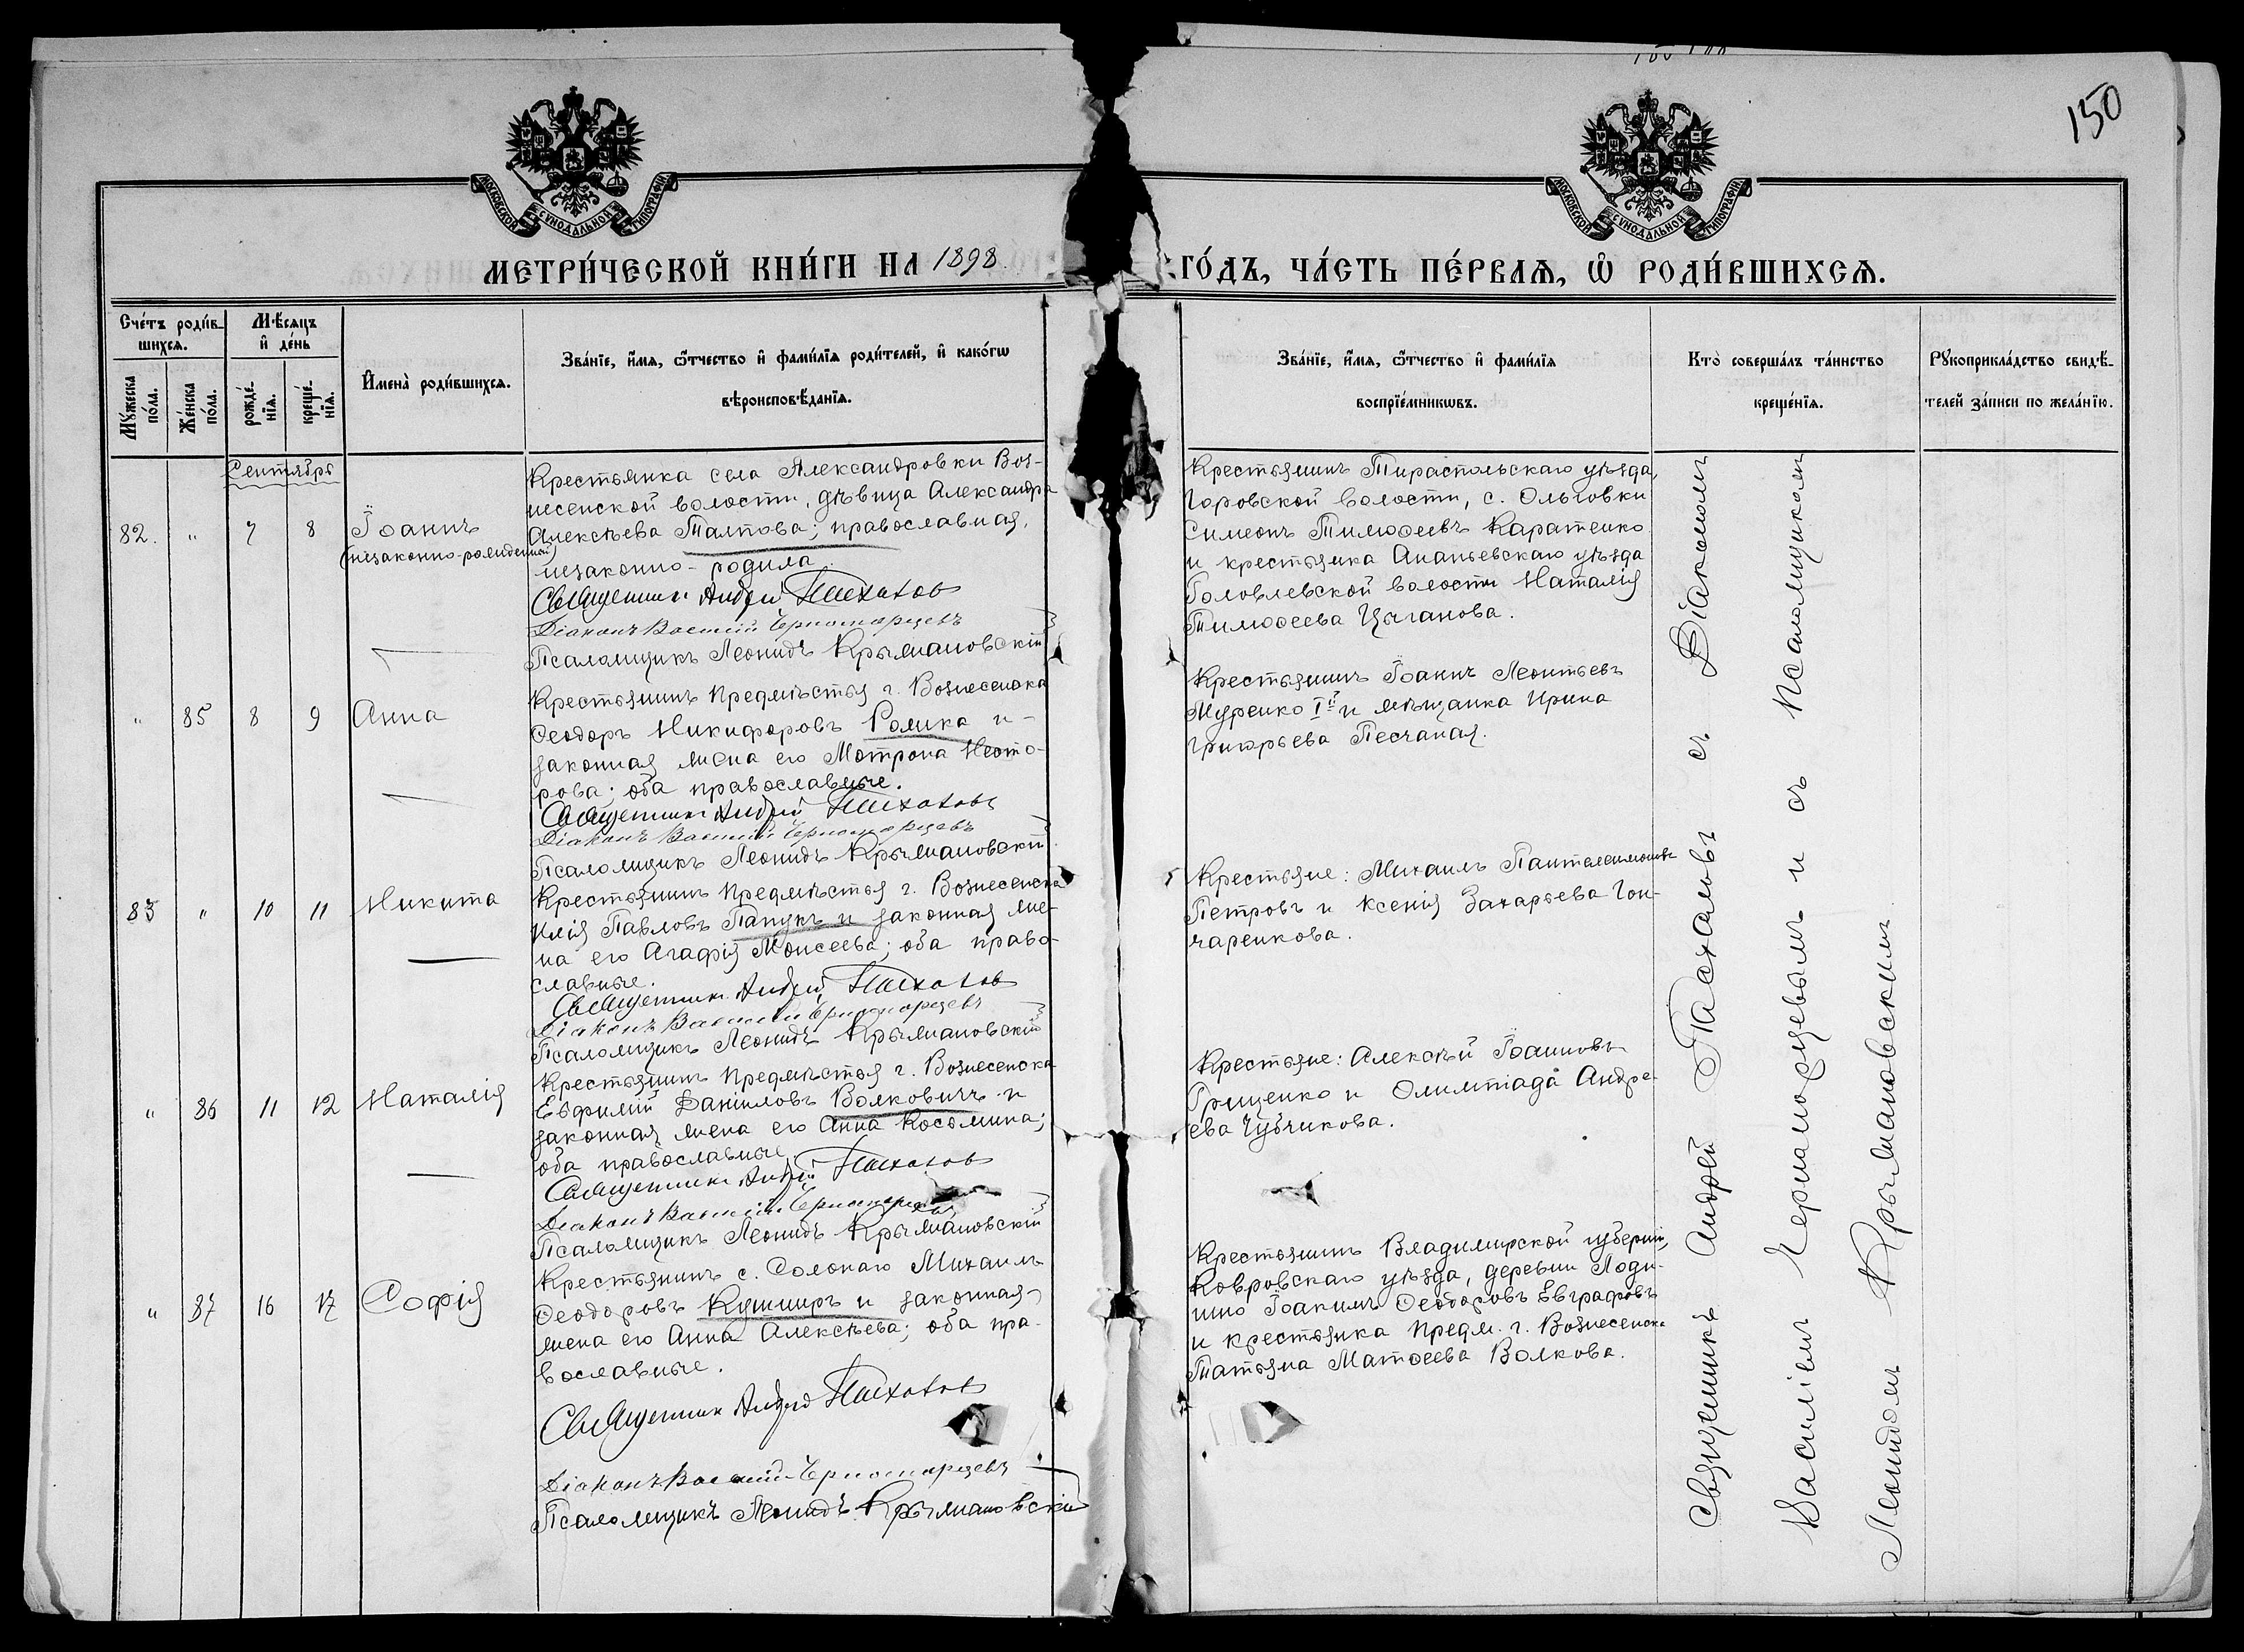 150
МОСКОВСКОЙ СѴНОДАЛЬНОЙ ТИПОГРАФІИ
МОСКОВСКОЙ СѴНОДАЛЬНОЙ ТИПОГРАФІИ
МЕТРИ́ЧЕСКОЙ КНИ́ГИ НА 1898 ГО́ДЪ, ЧА́СТЬ ПЕ́РВАѦ, Ѡ РОДИ́ВШИХСѦ.
Сче́тъ роди́в-
шихсѧ.
Мѣ́сѧцъ
и҆ де́нь
Мꙋ́жеска
по́ла.
Же́нска
по́ла.
рожде́-
нїѧ.
креще́-
нїѧ.
И҆мена̀ роди́вшихсѧ.
Зва́нїе, и҆́мѧ, ѻ҆́тчество и҆ фами́лїѧ роди́телей, и҆ како́гѡ
вѣроисповѣ́данїѧ.
Зва́нїе, и҆́мѧ, ѻ҆́тчество и҆ фами́лїѧ
воспрїе́мникѡвъ.
Кто̀ соверша́лъ та́инство
креще́нїѧ.
Рꙋкоприкла́дство свидѣ́-
телей за́писи по жела́нїю.
Сентябрь
82. " 7 8 Іоаннъ
(незаконно-рожденный)
Крестьянка села Александровки Воз-
несенской волости, дѣвица Александра
Алексѣева Талпова; православная,
незаконно-родила.
Священникъ Андрей Пасхаловъ
Діаконъ Василій Черноморцевъ
Псаломщикъ Леонидъ Крыжановскій
Крестьянинъ Тираспольскаго уѣзда,
Горовской волости, с. Ольговки
Симеонъ Тимоѳеевъ Каратенко
и крестьянка Ананьевскаго уѣзда
Головлевской волости Наталія
Тимоѳеева Цыганова.
" 85 8 9 Анна
Крестьянинъ предмѣстья г. Вознесенска
Ѳеодоръ Никифоровъ Ромка и
законная жена его Мотрона Несто-
рова; оба православные.
Священникъ Андрей Пасхаловъ
Діаконъ Василій Черноморцевъ
Псаломщикъ Леонидъ Крыжановскій
Крестьянинъ Іоаннъ Леонтьевъ
Муренко Iй и мѣщанка Ирина
Григорьева Песчаная.
83 " 10 11 Никита
Крестьянинъ предмѣстья г. Вознесенска
Илія Павловъ Папукъ и законная же-
на его Агафія Моисеева; оба право-
славные.
Священникъ Андрей Пасхаловъ
Діаконъ Василій Черноморцевъ
Псаломщикъ Леонидъ Крыжановскій
Крестьяне: Михаилъ Пантелеимоновъ
Петровъ и Ксенія Захарьева Гон-
чаренкова.
" 86 11 12 Наталія
Крестьянинъ предмѣстья г. Вознесенска
Евфимій Даніиловъ Волковичъ и
законная жена его Анна Косьмина;
оба православные.
Священникъ Андрей Пасхаловъ
Діаконъ Василій Черноморцевъ
Псаломщикъ Леонидъ Крыжановскій
Крестьяне: Алексѣй Іоанновъ
Гриценко и Олимпіада Андре-
ева Чубчикова.
" 87 16 17 Софія
Крестьянинъ с. Солонаго Михаилъ
Ѳеодоровъ Кушниръ и законная
жена его Анна Алексѣева; оба пра-
вославные.
Священникъ Андрей Пасхаловъ
Діаконъ Василій Черноморцевъ
Псаломщикъ Леонидъ Крыжановскій
Крестьянинъ Владимирской губерніи,
Ковровскаго уѣзда, деревни Лоди-
мино Іоакимъ Ѳеодоровъ Евграфовъ
и крестьянка предм. г. Вознесенска
Татьяна Матѳеева Волкова.
Священникъ Андрей Пасхаловъ съ Діакономъ
Василіемъ Черноморцевымъ и съ псаломщикомъ
Леонидомъ Крыжановскимъ